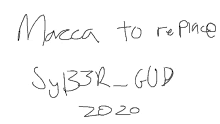 Marcca to replace
SyB3R_GUD
2020